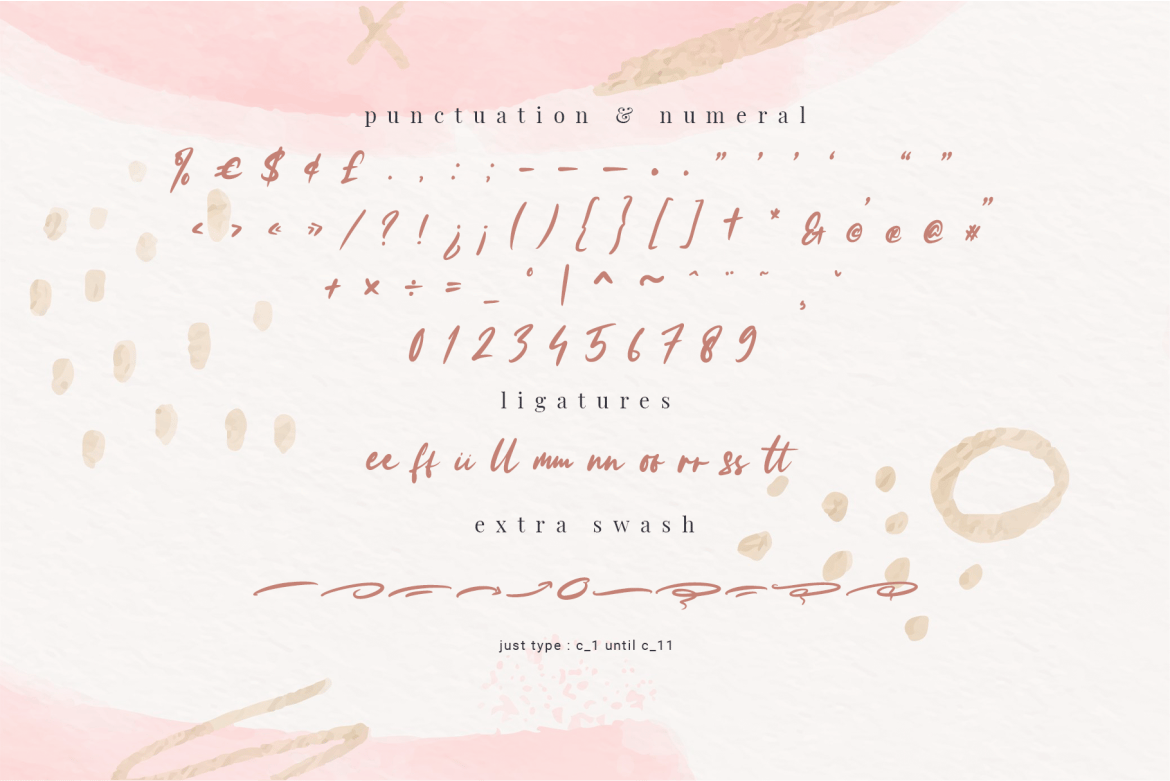 punctuation & numeral
% € $ ¢ £ . , : ; - – — • · ” ’ ’ ‘ “ ”
‹ › « » / ? ! ¿ ¡ ( ) { } [ ] † * & © ® @ #
+ × ÷ = _ ° | ^ ~ ˆ ¨ ˜ ¸ ˇ
0 1 2 3 4 5 6 7 8 9
ligatures
ee ff ii ll mm nn oo rr ss tt
extra swash
just type : c_1 until c_11